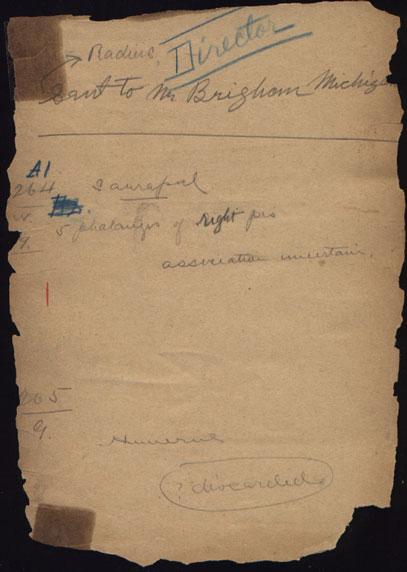 Radius,
Director
Sent to Mr Brigham Michiga
A1
264 Sauropod
5 phalanges of right pes
association uncertain.
9.
Humerus
? discarded